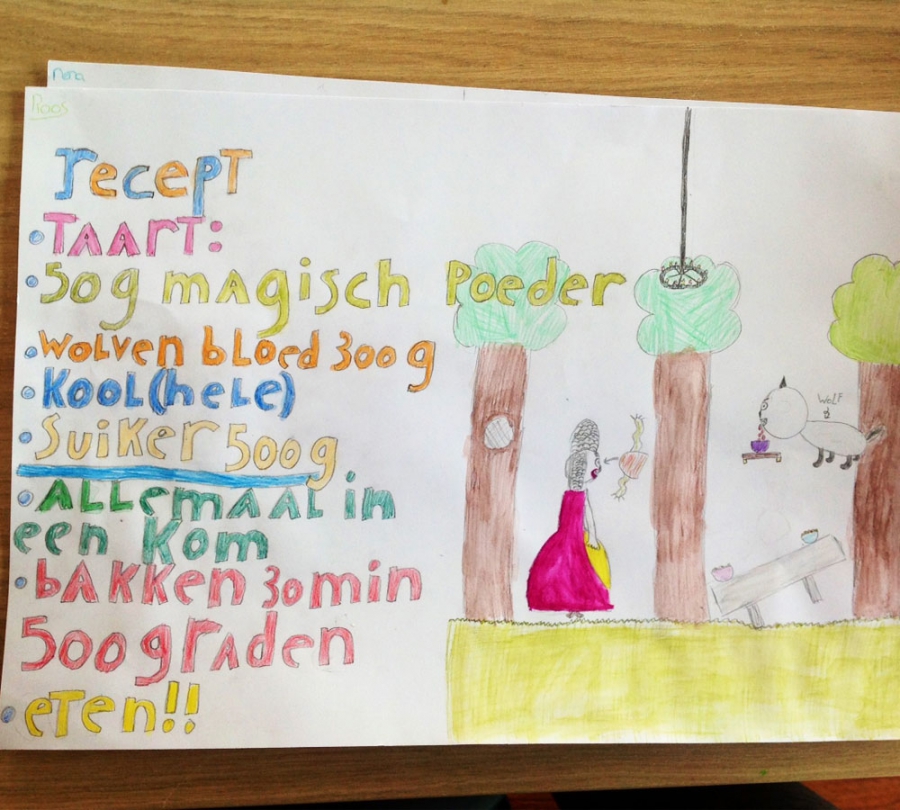 Nena
Roos
recept
TAArT:
50g mAgisch Poeder
wolven bloed 300 g
Kool(hele)
Suiker 500g
ALLemaal in
een Kom
bAKKen 30min
500grAden
eTen!!
WOLF